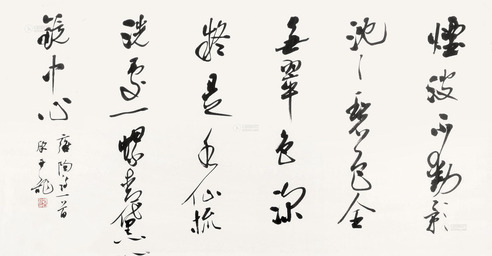 煙波不動影
沈沈碧色全
無翠色深
疑是水仙梳
洗處一螺青黛
鏡中心
雍陶詩一首